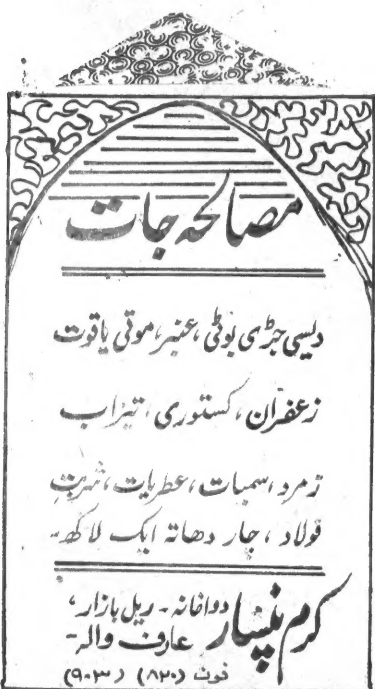 مصالحہ جات
دیسی جڑی بوٹی، عنبر، موتی یاقوت
زعفران، کستوری، تیزاب
زمرد، سمیات، عطریات، شربت
فولاد، چار دھاتہ ایک لاکھ۔
کرم پنسار دواخانہ۔ ریل بازار،
عارف والہ۔
فون (۸۲۰) (۹۰۳)